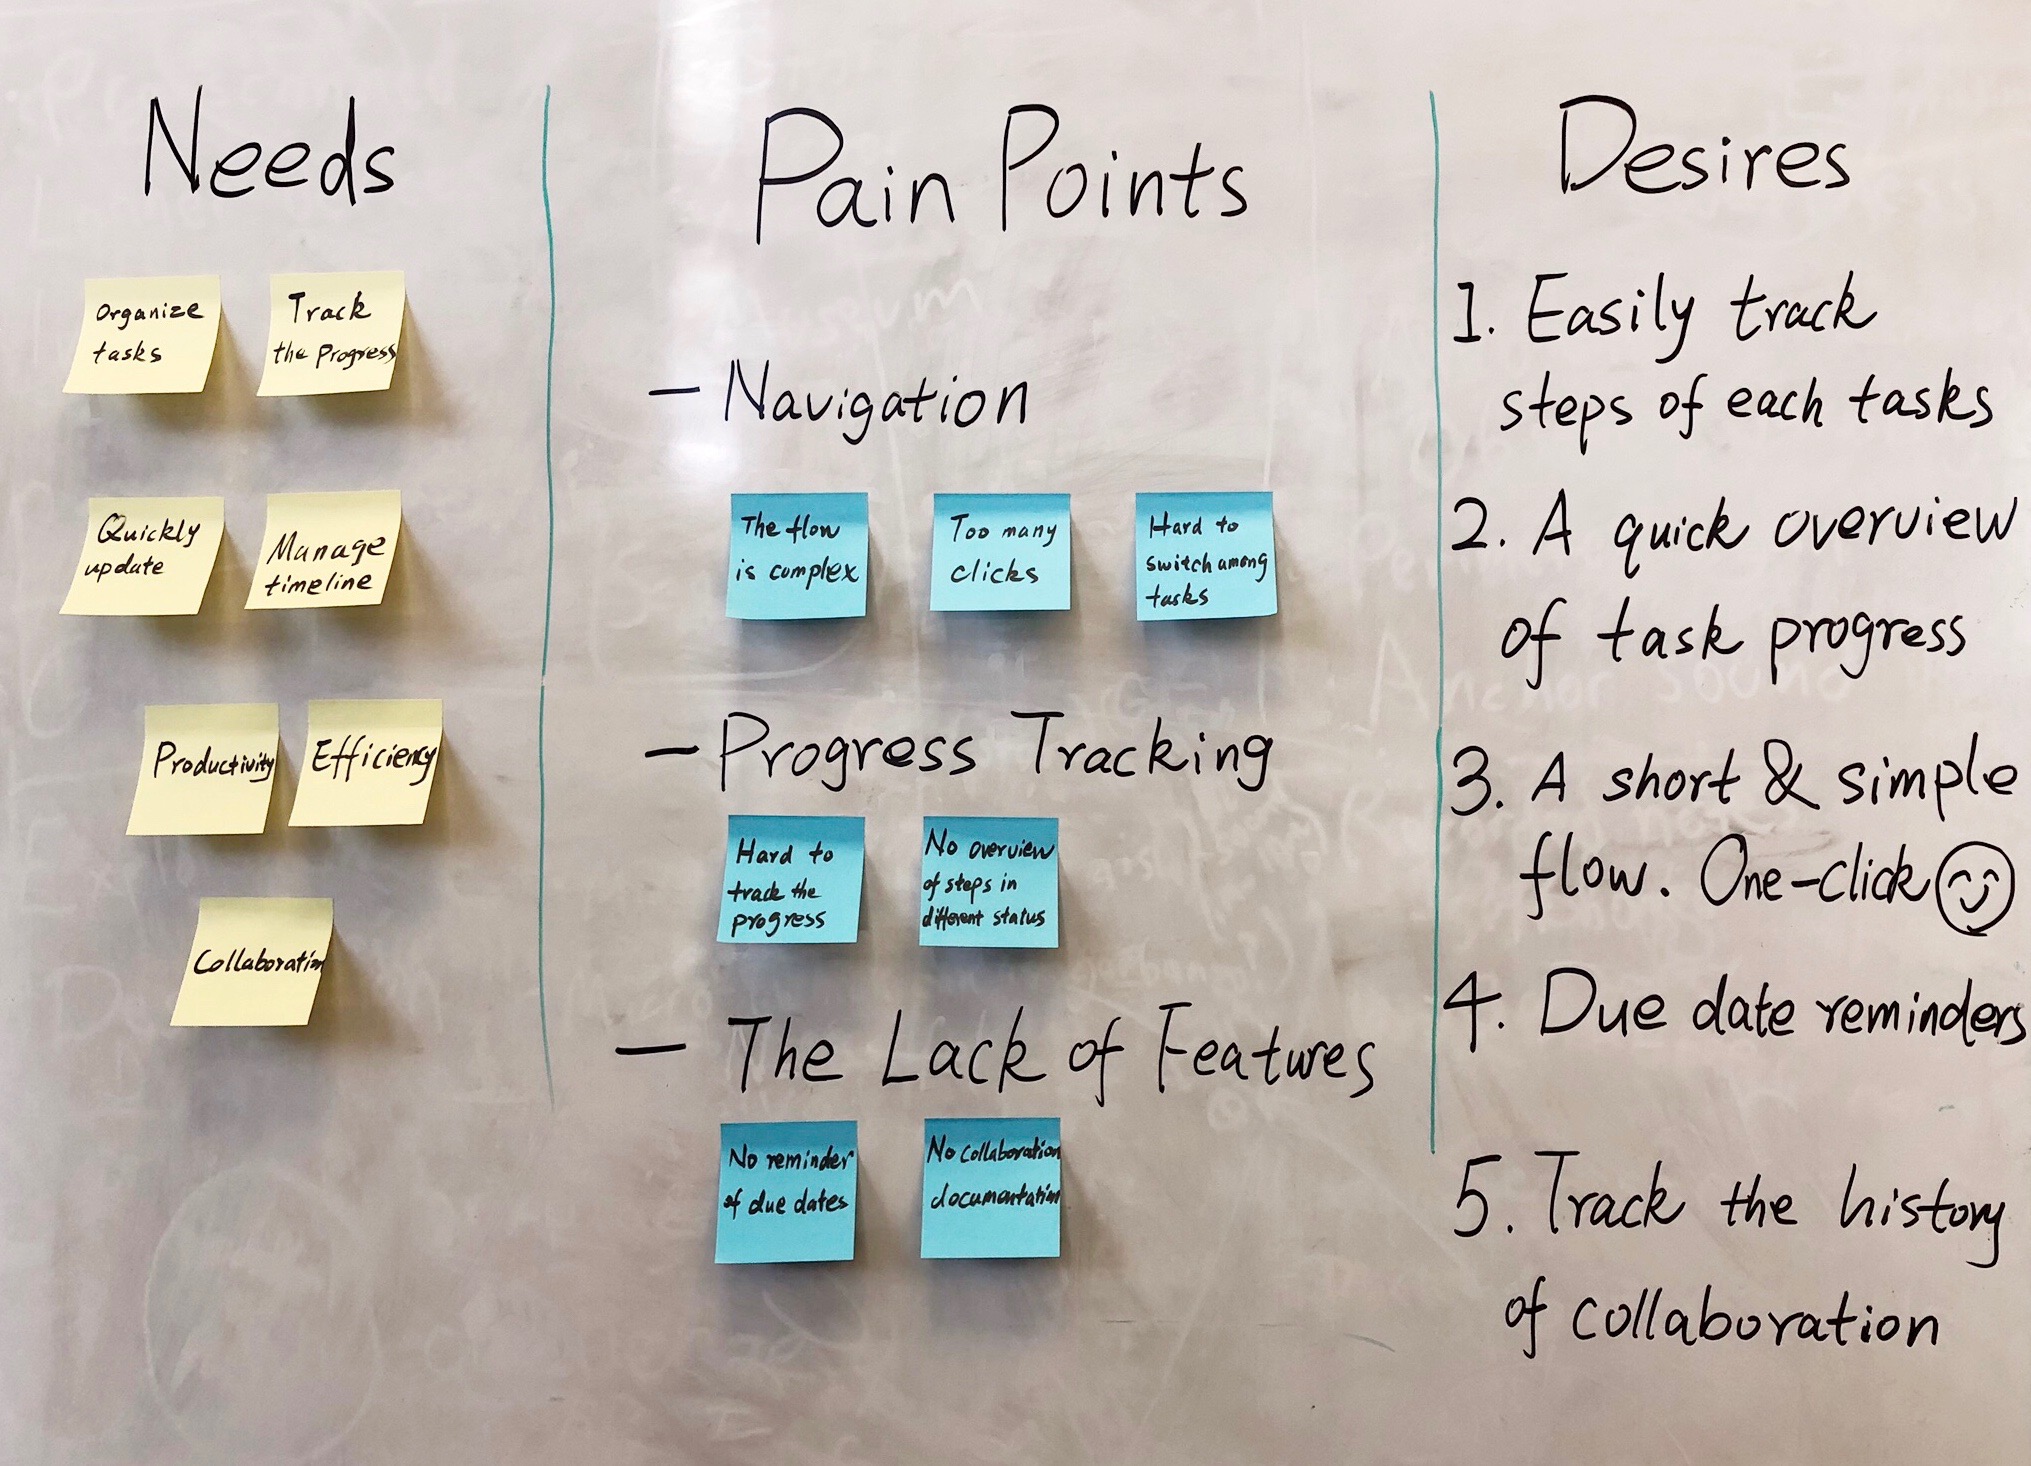 Needs
Organize
tasks
Track
the Progress
Quickly
update
Manage
timeline
Productivity
Efficiency
Collaboration
Pain Points
- Navigation
The flow
is complex
Too many
clicks
Hard to
switch among
tasks
- Progress Tracking
Hard to
track the
progress
No overview
of steps in
different status
- The Lack of Features
No reminder
of due dates
No collaboration
documentation
Desires
1. Easily track
steps of each tasks
2. A quick overview
of task progress
3. A short & simple
flow. One-click
4. Due date reminders
5. Track the history
of collaboration
Anchor sound